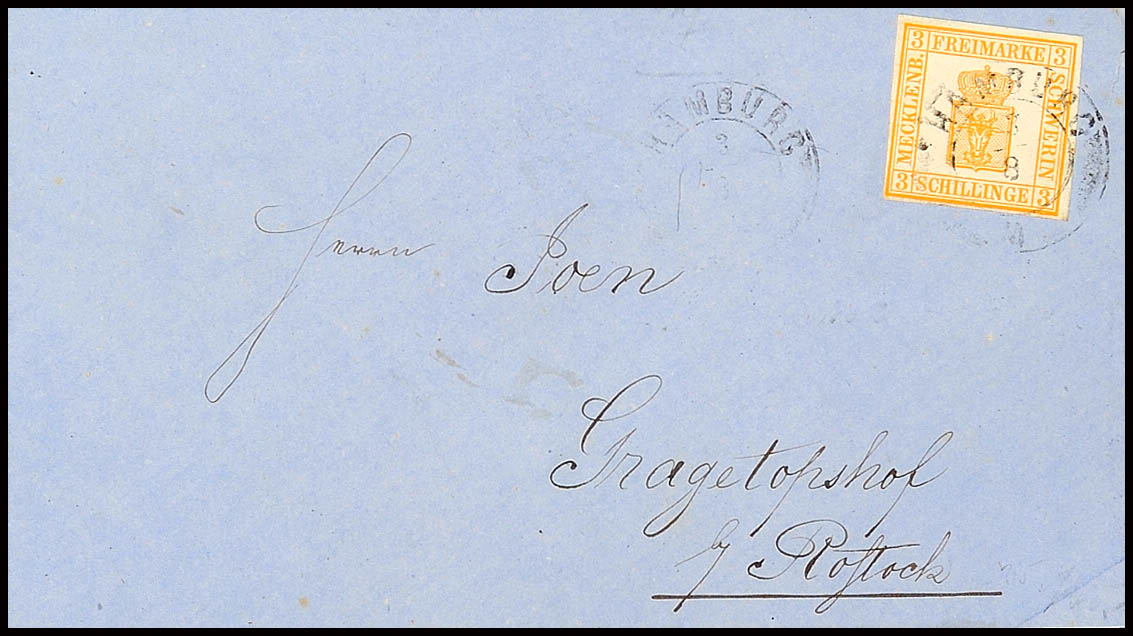 3 FREIMARKE 3
MECKLENB.
SCHWERIN
3 SCHILLINGE 3
HAMBURG
8
HAMBURG
3
Herrn Joen
Gragetopshof
b/ Rostock